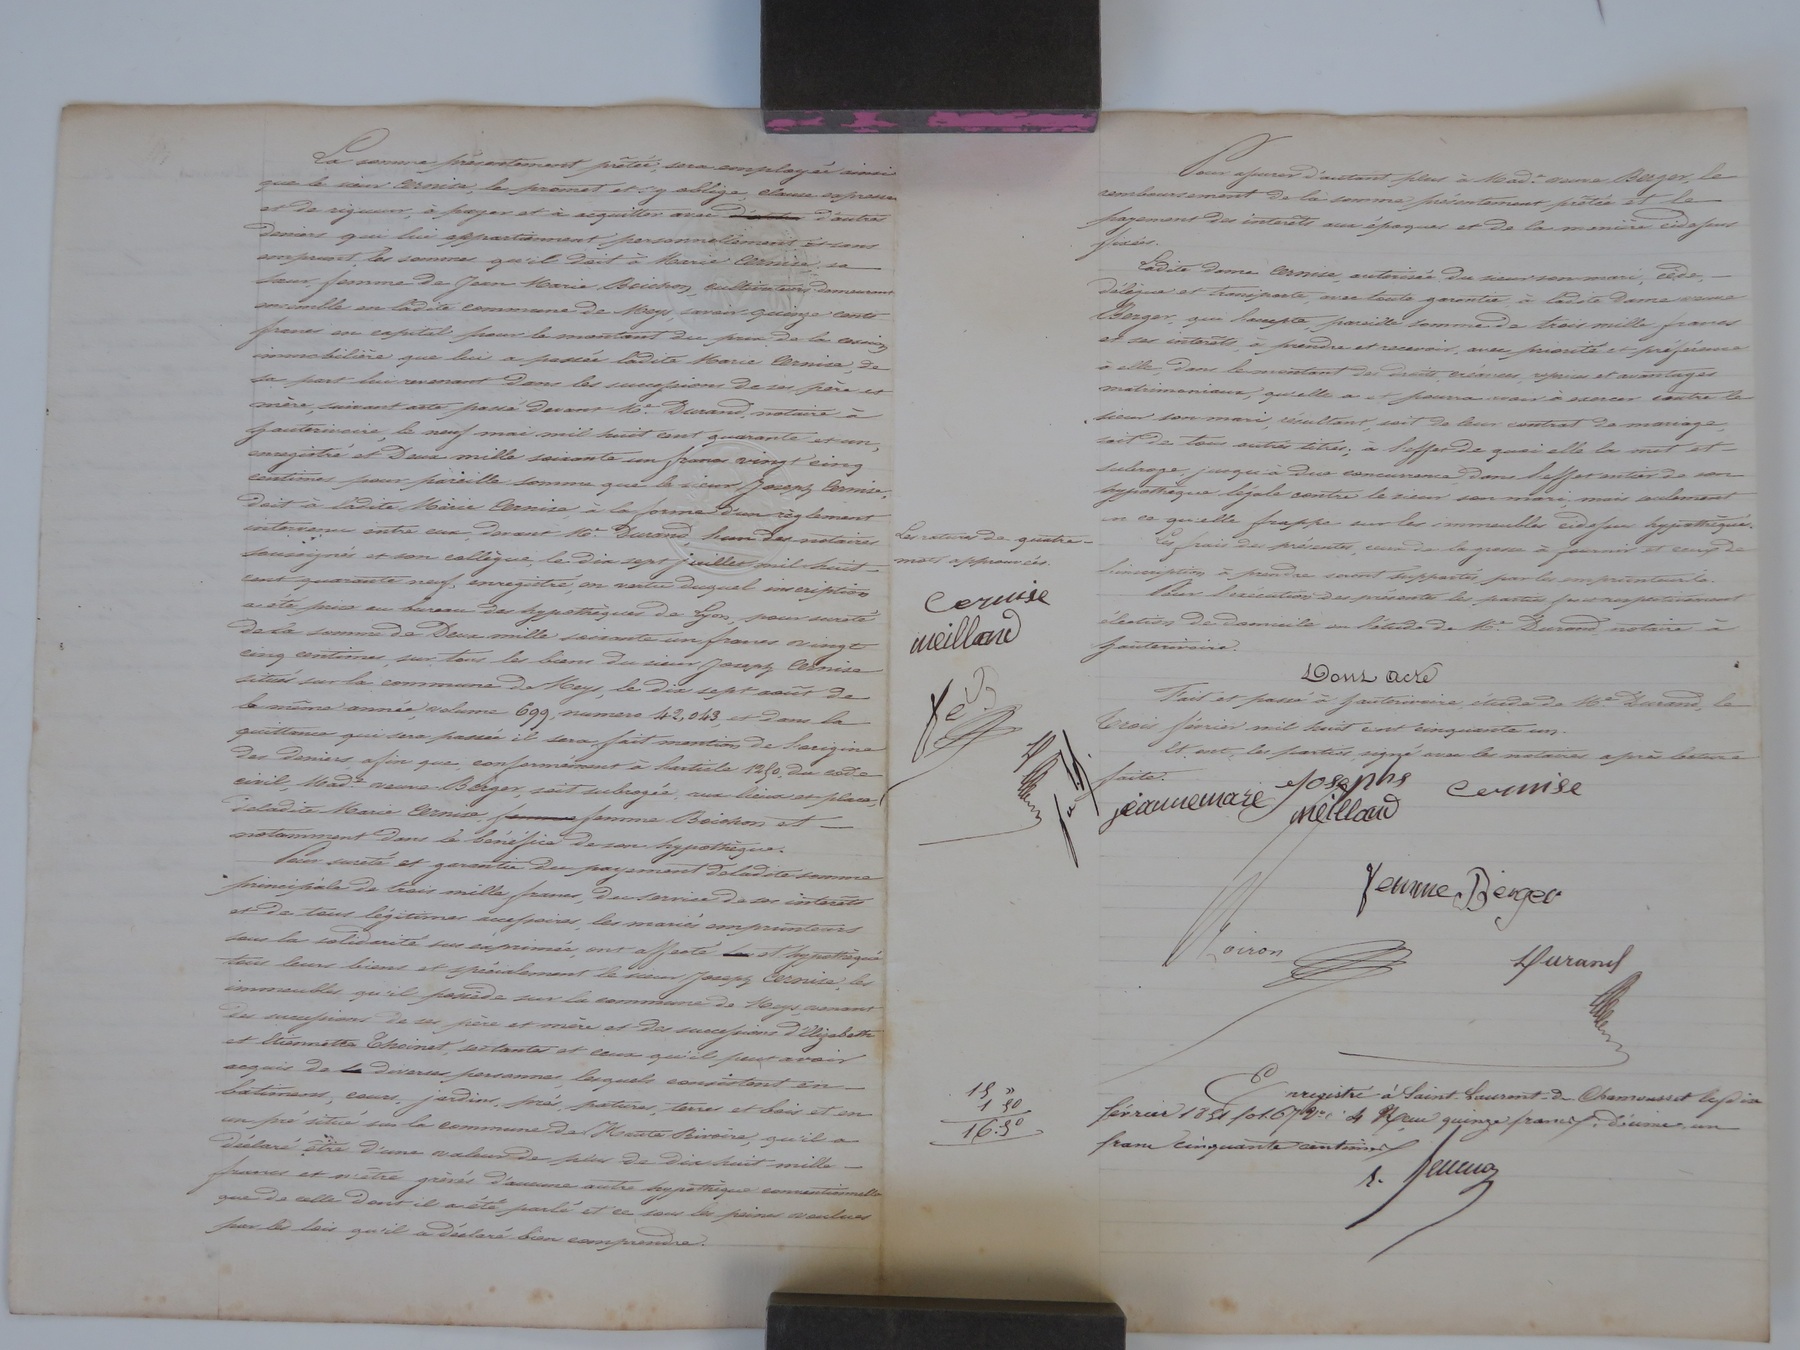 La somme présentement prêtée, sera employée ainsi
que le sieur Cernise, le promet et s'y oblige, clause expresse
et de rigueur, à payer et à acquitter avec d'autres
deniers qui lui appartiennent personnellement et sans
emprunt, les sommes qu'il doit à Marie Cernise, sa
sœur, femme de Jean Marie Boichon, cultivateurs demeurant
ensemble en ladite commune de Meys, savoir: quinze cents
francs en capital pour le montant du prix de la cession
immobilière que lui a passée ladite Marie Cernise, de
sa part lui revenant dans les successions de ses père et
mère, suivant acte passé devant Me. Durand, notaire à
hauterivoire, le neuf mai mil huit cent quarante et un,
enregistré et Deux mille soixante un francs vingt cinq
centimes pour pareille somme que le sieur Joseph Cernise,
doit à ladite Marie Cernise, à la forme d'un règlement
intervenu entre eux, devant Me. Durand, l'un des notaires
soussignés et son collègue, le dix sept juillet mil huit
cent quarante neuf, enregistré, en vertu duquel inscription
a été prise au bureau des hypothèques de Lyon, pour sureté
de la somme de Deux mille soixante un francs vingt
cinq centimes, sur tous les biens du sieur Joseph Cernise
situés sur la commune de Meys, le dix sept août de
la même année, volume 699, numero 42,043, et dans la
quittance qui sera passée il sera fait mention de l'origine
des deniers, afin que, conformément à l'article 1250, du code
civil, Made. veuve Berger, soit subrogée, aux lieux et place,
de ladite Marie Cernise, femme femme Boichon et
notamment dans le bénéfice de son hypothèque.
Pour sureté et garantie du payement de ladite somme
principale de trois mille francs, du service de ses intérêts
et de tous légitimes accessoires, les mariés emprunteurs
sous la solidarité sus exprimée, ont affecté et hypothéqué
tous leurs biens et spécialement le sieur Joseph Cernise, les
immeubles qu'il possède sur la commune de Meys, venant
des successions de ses père et mère et des successions d'Elizabeth
et Etiennette Thoinet, ses tantes et ceux qu'il peut avoir
acquis de diverses personnes, lesquels consistent en
bâtiments, cours, jardins, prés, patures, terres et bois et en
un pré situé sur la commune de Haute Rivoire, qu'il a
déclaré être d'une valeur de plus de dix huit mille
francs et n'être grévés d'aucune autre hypothèque conventionnelle
que de celle dont il a été parlé et ce sous les peines voulues
par les lois qu'il a déclaré bien comprendre.
Les ratures de quatre
mots approuvées.
Cernise
meilland
Ve B
D
15 "
1 50
16.50
Pour assurer d'autant plus à Made. veuve Berger, le
remboursement de la somme présentement prêtée et le
payement des intérêts aux époques et de la manière cidessus
fixées.
Ladite dame Cernise, autorisée du sieur son mari, cède,
délègue et transporte, avec toute garantie, à ladite dame veuve
Berger, qui l'accepte, pareille somme de trois mille francs
et ses intérêts, à prendre et recevoir, avec priorité et préférence
à elle, dans le montant des droits, créances, reprises et avantages
matrimoniaux, qu'elle a et pourra avoir à exercer contre le
sieur son mari, résultant, soit de leur contrat de mariage,
soit de tous autres titres; à l'effet de quoi elle la met et
subroge, jusqu'à due concurrence dans l'effet entier de son
hypothèque légale contre le sieur son mari, mais seulement
en ce qu'elle frappe sur les immeubles cidessus hypothéqués.
Les frais des présentes, ceux de la grosse à fournir et ceux de
l'inscription à prendre seront supportés par les emprunteurs.
Pour l'exécution des présentes les parties font respectivement
élection de domicile en l'étude de Me. Durand, notaire à
hauterivoire.
Dont acte
Fait et passé à hauterivoire, étude de Me. Durand, le
trois février mil huit cent cinquante un.
Et ont, les parties, signé avec les notaires après lecture
faite.
jeannemarie Josephs Cernise
meilland
Veuve Berger
Loiron Durand
Enregistré à Saint Laurent de Chamousset le dix
février 1851 fo 167 Vo c 4 Reçu quinze francs, décime un
franc cinquante centimes